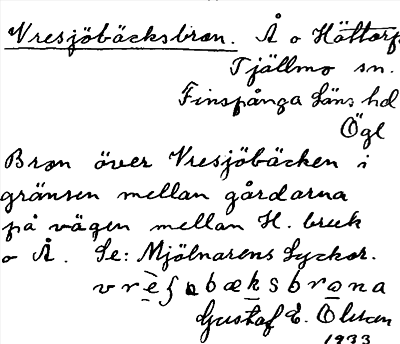 Vresjöbäcksbron. Å o Hättorp
Tjällmo sn.
Finspånga Läns hd
Ögl
Bron över Vresjöbäcken i
gränsen mellan gårdarna
på vägen mellan H. bruk
o Å. Se: Mjölnarens Lyckor.
Gustaf E. Olsson
1933